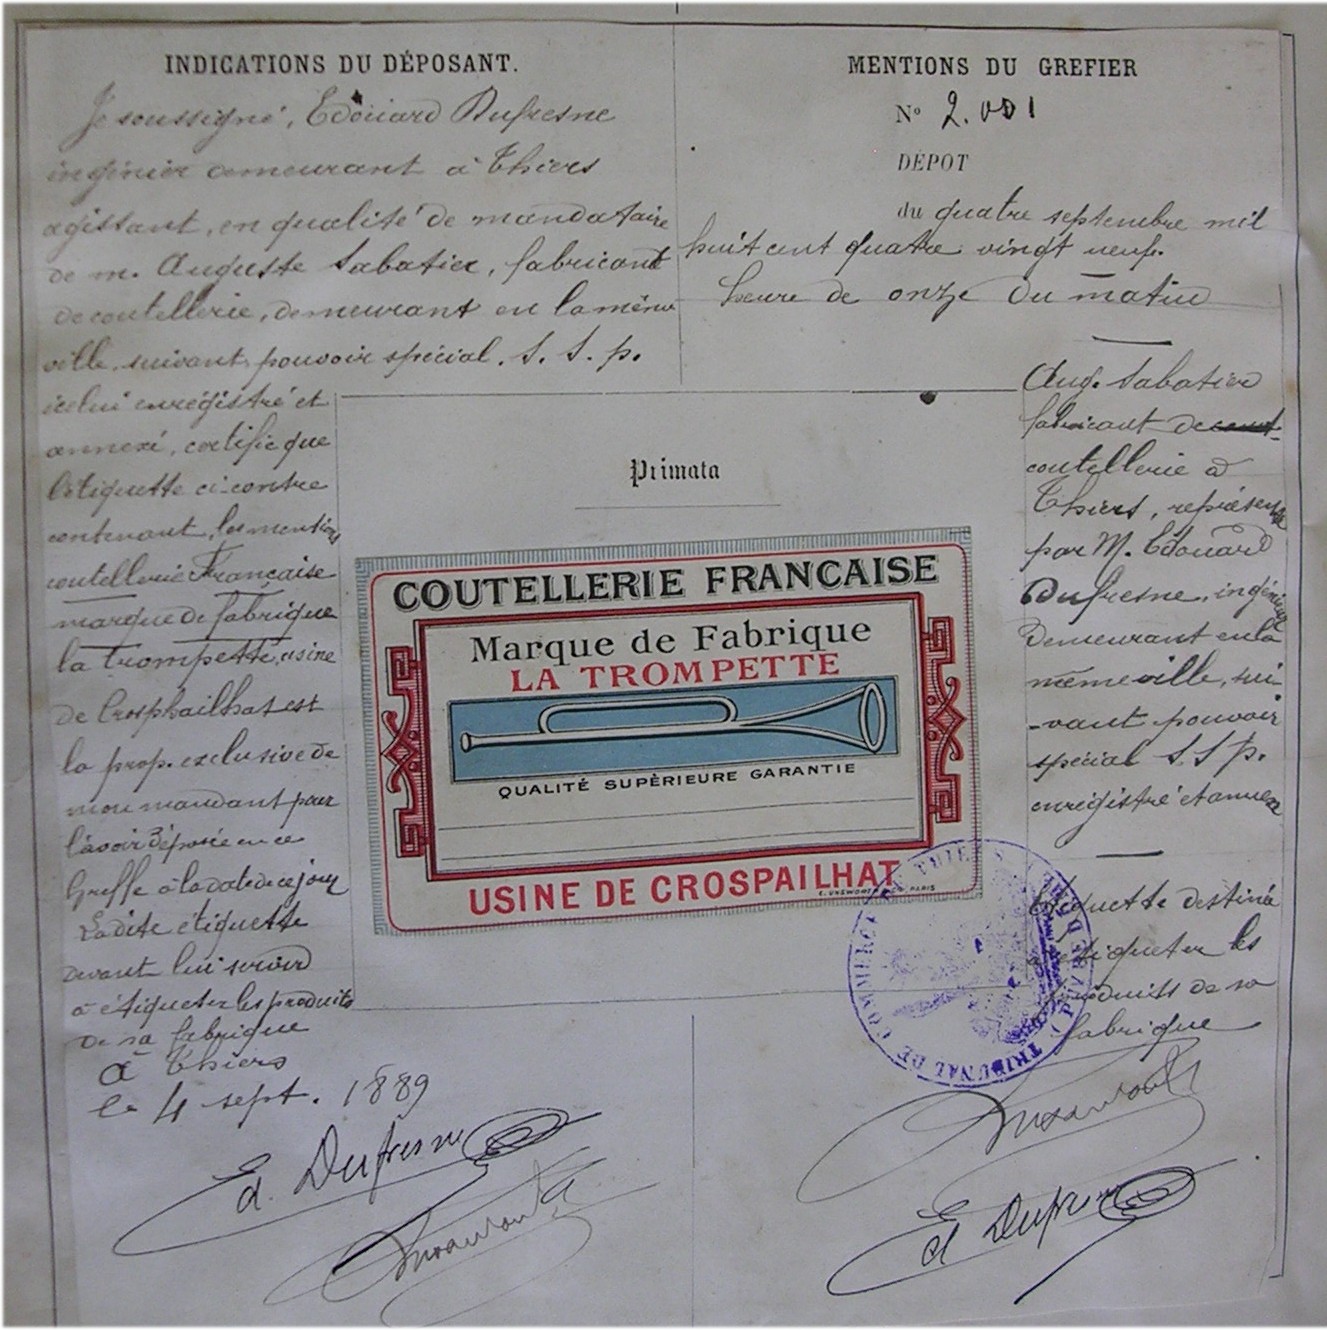 INDICATIONS DU DÉPOSANT.
Je soussigné, Edouard Dufresne
ingénier demeurant à Thiers
agissant, en qualité de mandataire
de m. Auguste Sabatier, fabricant
de coutellerie, demeurant en la même
ville, suivant pouvoir spécial. S. S. p.
icelui enregistré et
annexé, certifie que
l'étiquette ci-contre
contenant, les mentions
coutellerie Française
marque de fabrique
la trompette, usine
de Crosphailhat est
la prop. exclusive de
mon mandant pour
l'avoir déposée en ce
Greffe à la date de ce jour
Ladite étiquette
devant lui servir
à étiqueter les produits
de sa fabrique
à Thiers
le 4 sept. 1889
Ed. Dufresne
MENTIONS DU GREFIER
No 2.001
DÉPOT
du quatre septembre mil
huit cent quatre vingt neuf.
heure de onze du matin
Aug. Sabatier
fabricant de
coutellerie à
Thiers, représenté
par M. Edouard
Dufresne, ingénieur
demeurant en la
même ville, sui-
-vant pouvoir
spécial S S p.
enregistré et annexé
Etiquette destinée
à étiqueter les
produits de sa
fabrique
Ed Dufresne
Primata
COUTELLERIE FRANCAISE
Marque de Fabrique
LA TROMPETTE
QUALITÉ SUPÈRIEURE GARANTIE
USINE DE CROSPAILHAT
PARIS
TRIBUNAL DE COMMERCE DE THIERS (PUY DE DÔME)